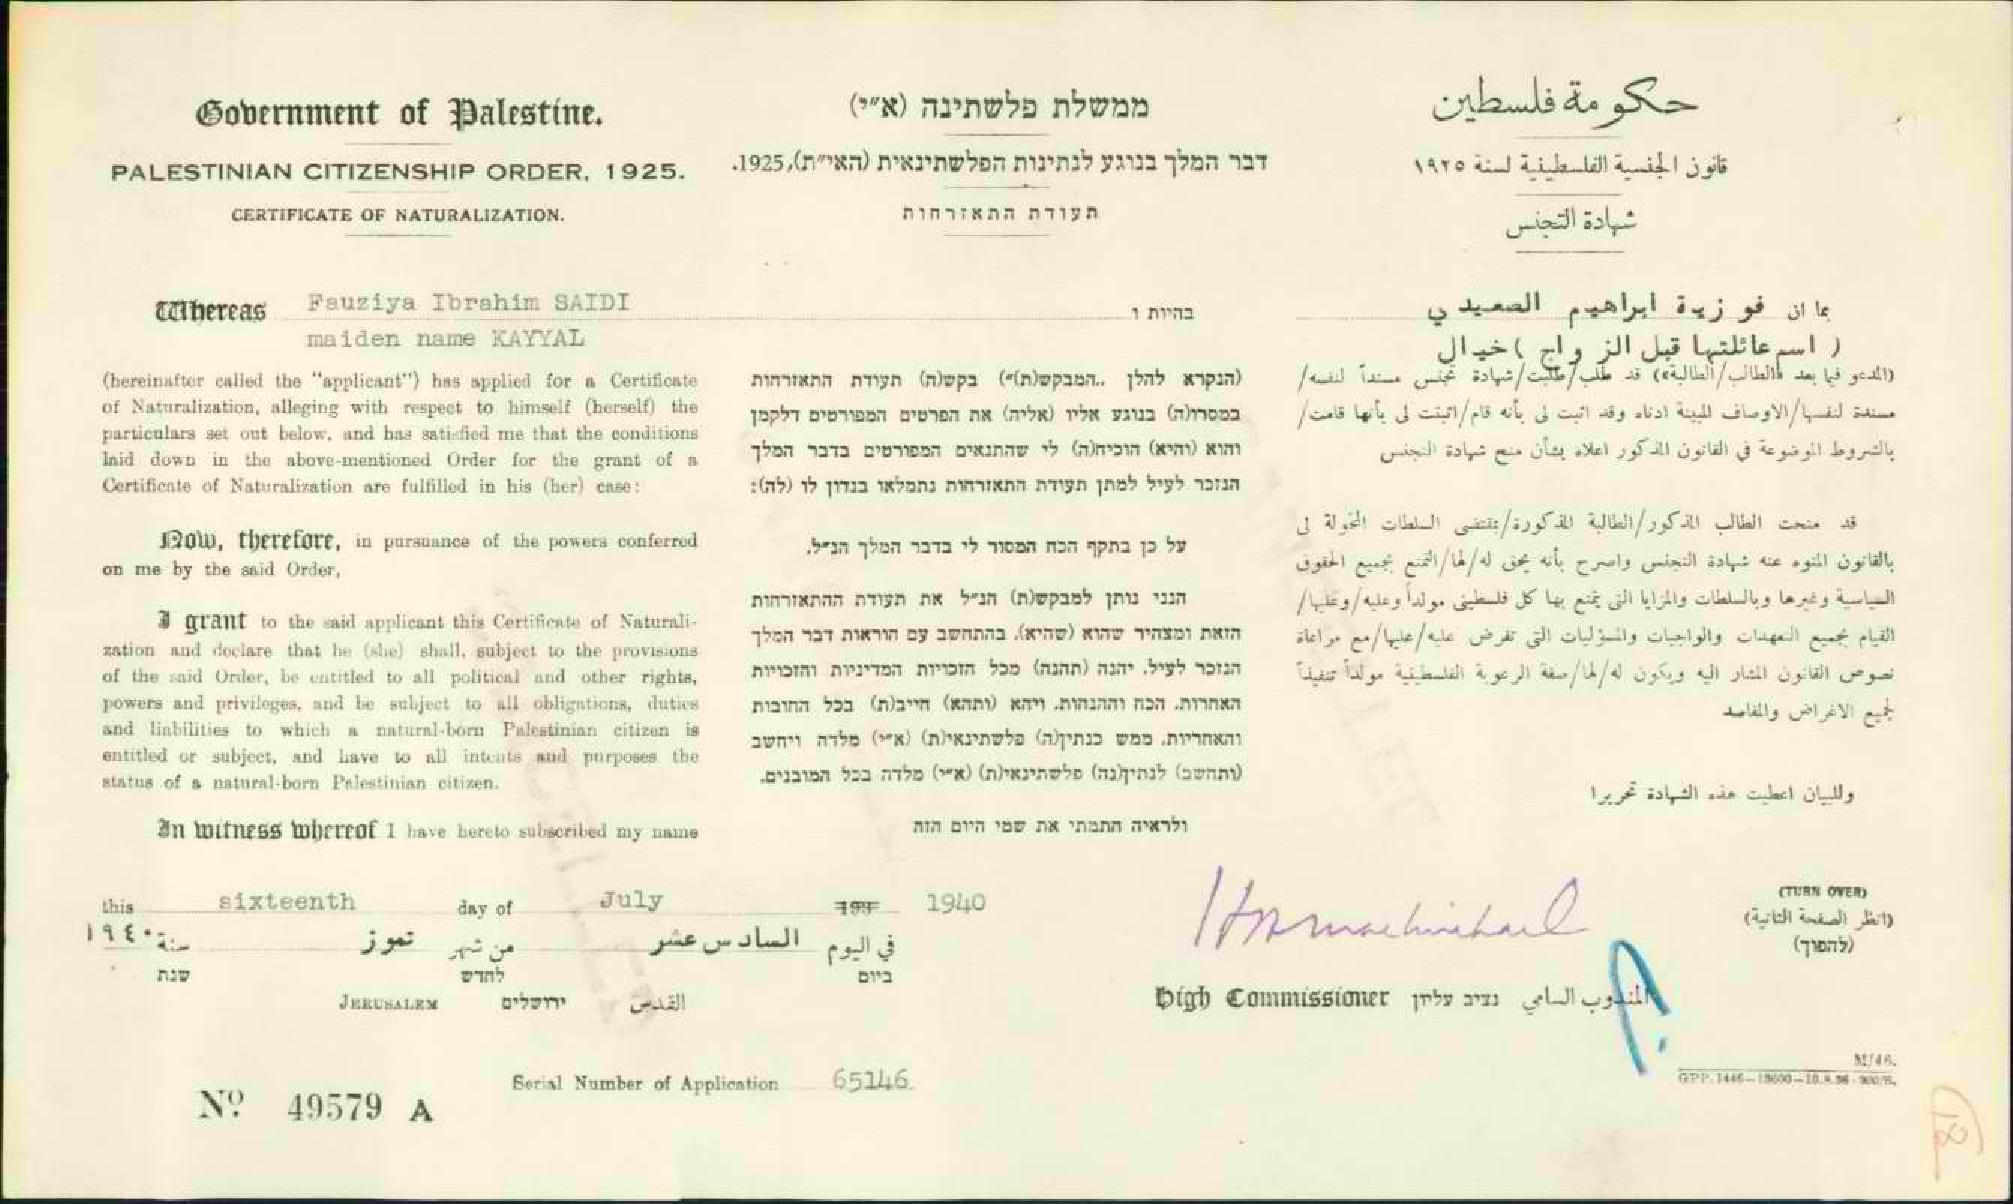 Government of Palestine.
PALESTINIAN CITIZENSHIP ORDER, 1925.
CERTIFICATE OF NATURALIZATION.
Whereas Fauziya Ibrahim SAIDI
maiden name KAYYAL
(hereinafter called the "applicant") has applied for a Certificate
of Naturalization, alleging with respect to himself (herself) the
particulars set out below, and has satisfied me that the conditions
laid down in the above-mentioned Order for the grant of a
Certificate of Naturalization are fulfilled in his (her) case:
Now, therefore, in pursuance of the powers conferred
on me by the said Order,
I grant to the said applicant this Certificate of Naturali-
zation and declare that he (she) shall, subject to the provisions
of the said Order, be entitled to all political and other rights,
powers and privileges, and be subject to all obligations, duties
and liabilities to which a natural-born Palestinian citizen is
entitled or subject, and have to all intents and purposes the
status of a natural-born Palestinian citizen.
In witness whereof I have hereto subscribed my name
ממשלת פלשתינה (א״י)
דבר המלך בנוגע לנתינות הפלשתינאית (האי״ת), 1925.
תעודת התאזרחות
בהיות ו
(הנקרא להלן ״המבקש(ת)״) בקש(ה) תעודת התאזרחות
במסרו(ה) בנוגע אליו (אליה) את הפרטים המפורטים דלקמן
והוא (והיא) הוכיח(ה) לי שהתנאים המפורטים בדבר המלך
הנזכר לעיל למתן תעודת התאזרחות נתמלאו בנדון לו (לה):
על כן בתקף הכח המסור לי בדבר המלך הנ״ל,
הנני נותן למבקש(ת) הנ״ל את תעודת ההתאזרחות
הזאת ומצהיר שהוא (שהיא), בהתחשב עם הוראות דבר המלך
הנזכר לעיל, יהנה (תהנה) מכל הזכויות המדיניות והזכויות
האחרות, הכח וההנחות, ויהא (ותהא) חייב(ת) בכל החובות
והאחריות, ממש כנתין(ה) פלשתינאי(ת) (א״י) מלדה ויחשב
(ותחשב) לנתין(נה) פלשתינאי(ת) (א״י) מלדה בכל המובנים.
ולראיה חתמתי את שמי היום הזה
حكومة فلسطين
قانون الجنسية الفلسطينية لسنة ١٩٢٥
شهادة التجنس
بما ان فوزية ابراهيم الصعيدي
(اسم عائلتها قبل الزواج) خيال
(المدعو فيما بعد «الطالب/الطالبة») قد طلب/طلبت/شهادة تجنس مسنداً لنفسه/
مسندة لنفسها/الاوصاف المبينة ادناه وقد اثبت لي بأنه قام/اثبتت لي بأنها قامت/
بالشروط الموضوعة في القانون المذكور اعلاه بشأن منح شهادة التجنس
قد منحت الطالب المذكور/الطالبة المذكورة/بمقتضى السلطات المخولة لي
بالقانون المنوه عنه شهادة التجنس واصرح بأنه يحق له/لها/التمتع بجميع الحقوق
السياسية وغيرها وبالسلطات والمزايا التي يتمتع بها كل فلسطيني مولداً وعليه/وعليها/
القيام بجميع التعهدات والواجبات والمسؤليات التي تفرض عليه/عليها/مع مراعاة
نصوص القانون المشار اليه ويكون له/لها/صفة الرعوية الفلسطينية مولداً تنفيذاً
لجميع الاغراض والمقاصد
وللبيان اعطيت هذه الشهادة تحريرا
this sixteenth day of July 193 1940
في اليوم السادس عشر من شهر تموز سنة ١٩٤٠
ביום לחדש שנת
JERUSALEM ירושלים القدس
High Commissioner נציב עליון المندوب السامي
(TURN OVER)
(انظر الصفحة الثانية)
(להפוך)
Serial Number of Application 65146
Nº 49579 A
M/46.